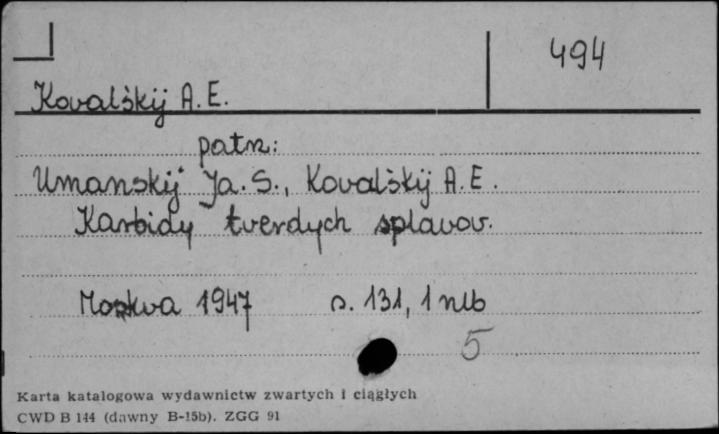 494
Kovalśkij A. E.
patrz:
Umanskij Ja. S., Kovalśkij A. E.
Karbidy tverdych splavov.
Moskva 1947 s. 131, 1 nlb
5
Karta katalogowa wydawnictw zwartych i ciągłych
CWD B 144 (dawny B-15b). ZGG 91